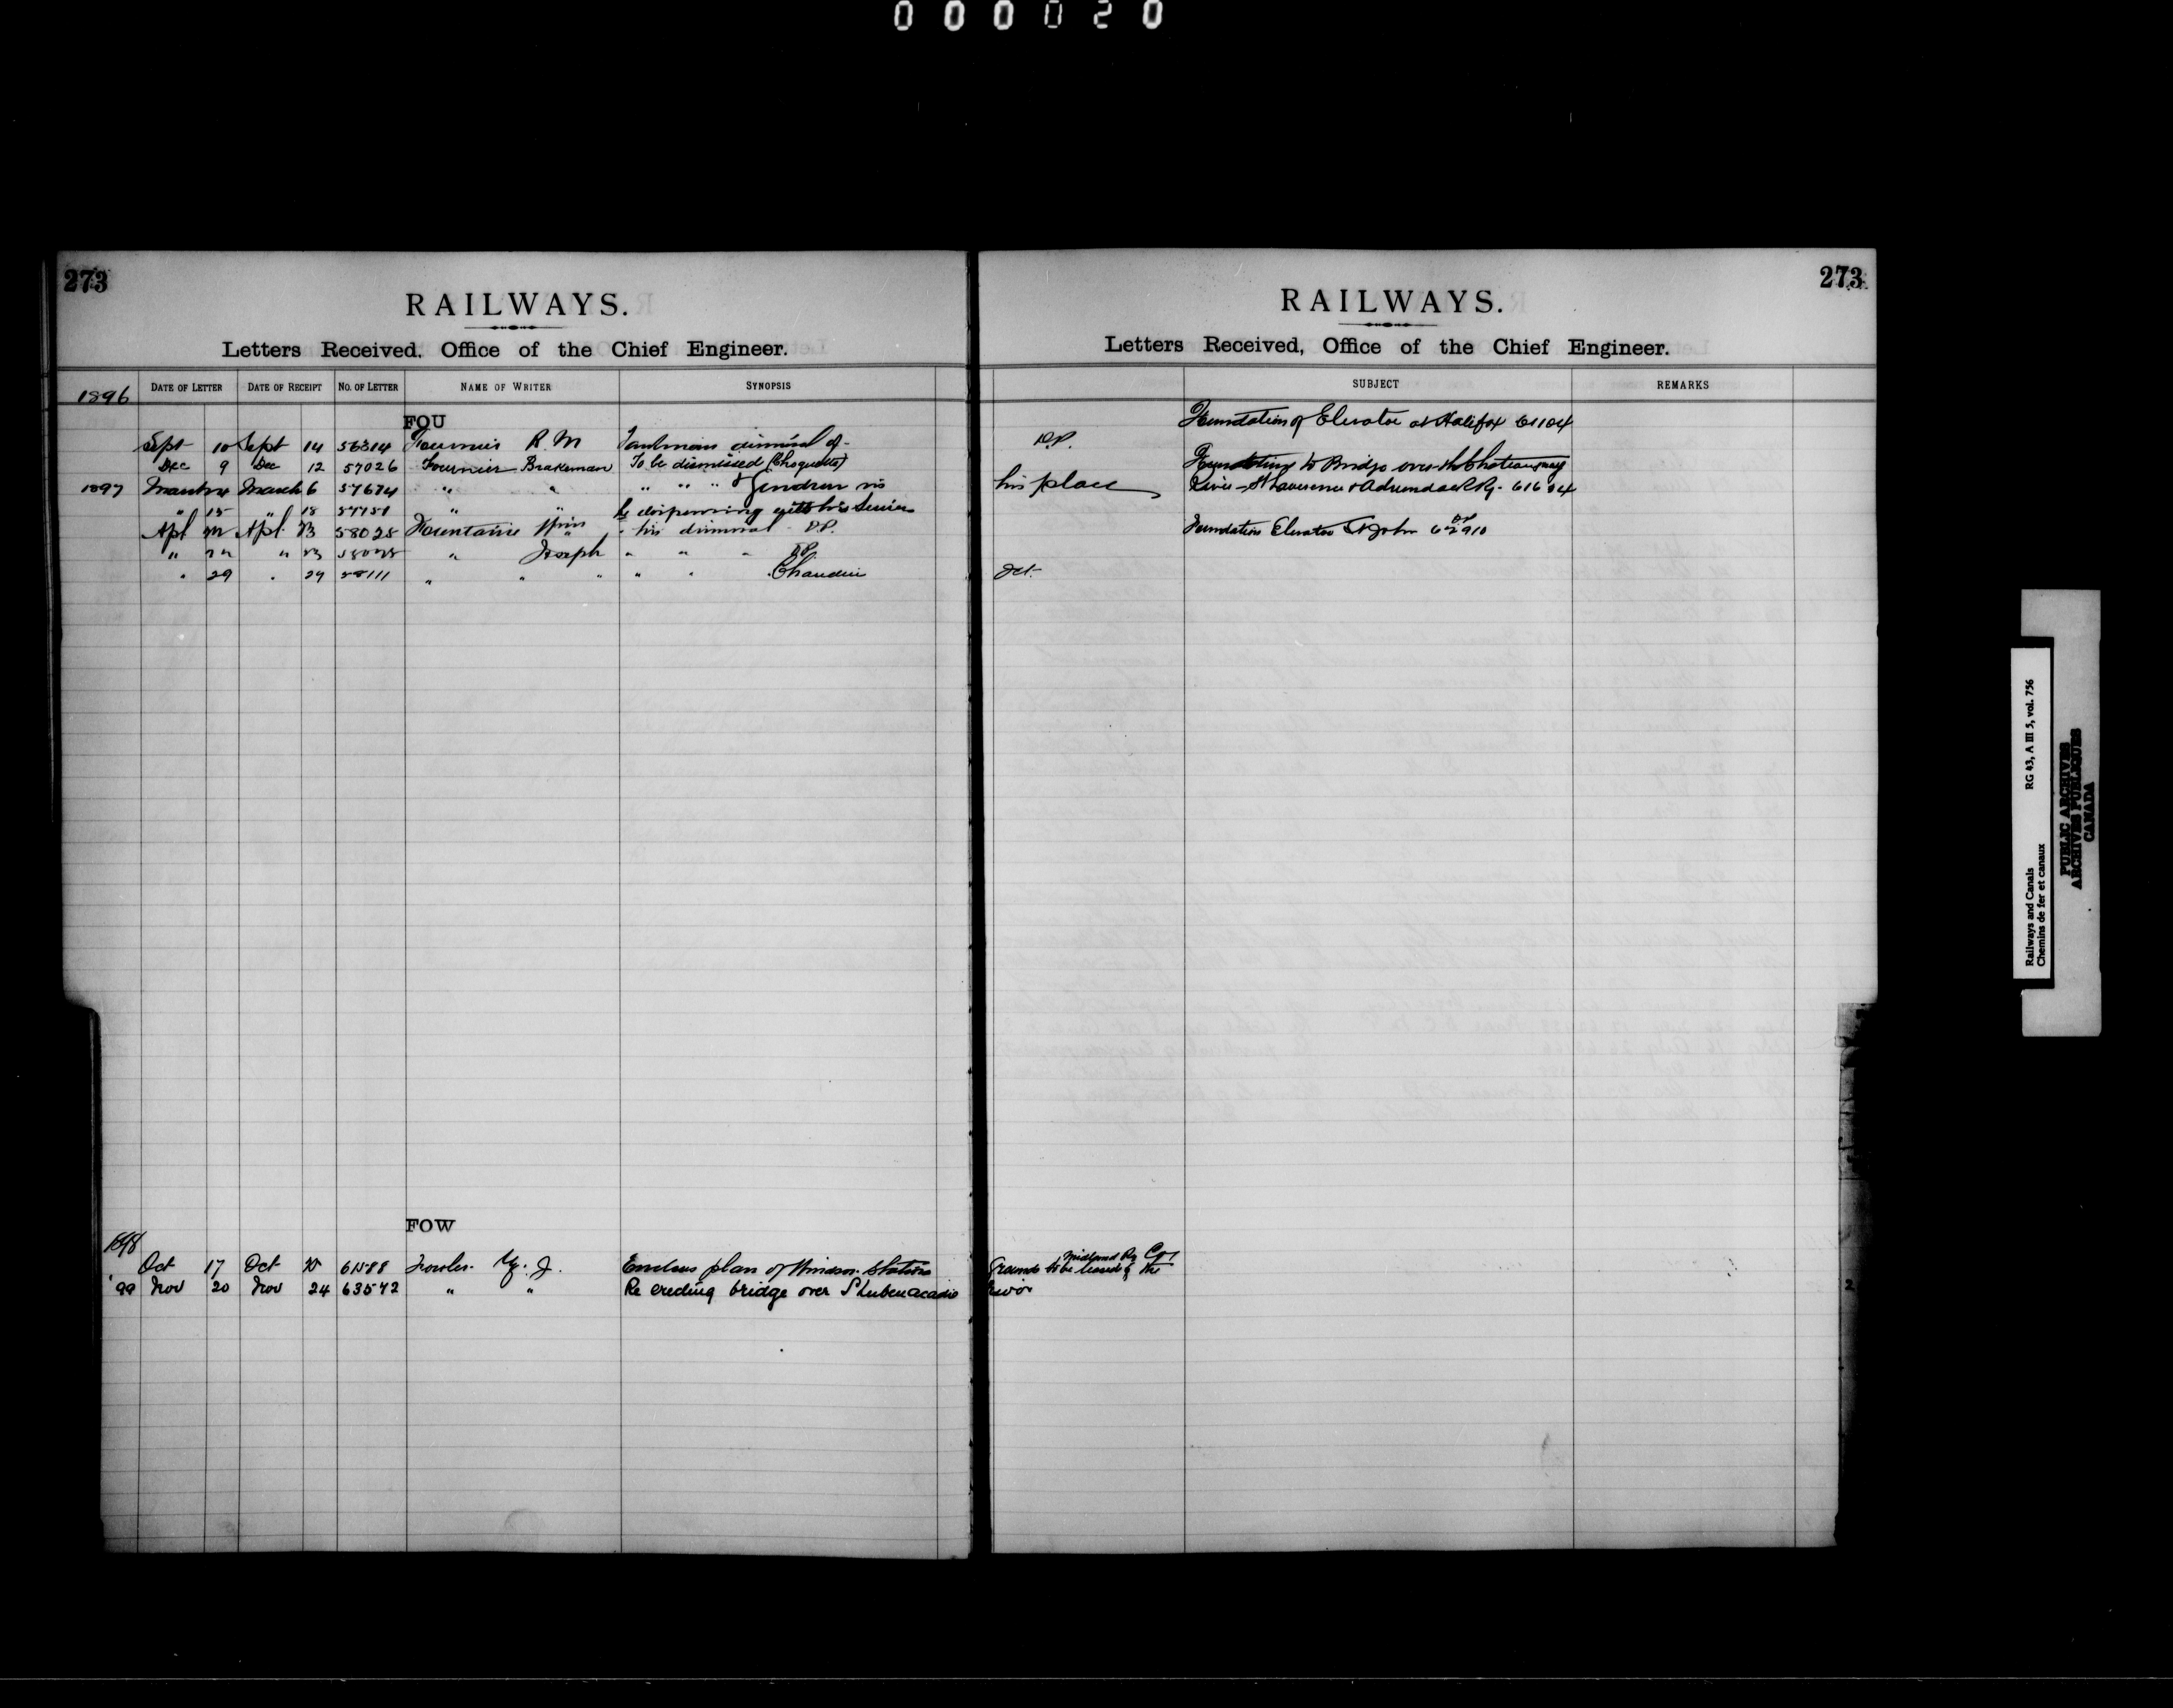 000020
273
RAILWAYS.
Letters Received, Office of the Chief Engineer.
DATE OF LETTER DATE OF RECEIPT No. OF LETTER NAME OF WRITER SYNOPSIS
1896
FOU
Sept 10 Sept 14 56314 Fournier R. M dismissal of
Dec 9 Dec 12 57026 Fournier Brakeman To be dismissed (Choquette)
1897 March March 6 57674 " " " " " & Gendron vis
" 15 " 18 " " Re dispensing with his services
Apl Apl 23 58025 Fountaine " his dismissal DP.
" " 23 " Joseph " " " DP
" 29 " 29 58111 " " " " " Chaudiere
FOW
1898
Oct 17 Oct 61588 Fowler J. Encloses plan of Windsor Station
'99 Nov 20 Nov 24 63572 " " Re erecting bridge over Shubenacadie
273
RAILWAYS.
Letters Received, Office of the Chief Engineer.
SUBJECT REMARKS
Foundation of Elevator at Halifax 61104
D.P.
Foundations to Bridge over the Chateauguay
his place River St Lawrence & Adirondack Ry. 61604
Foundation Elevator St John 62910
Jct.
Midland Ry Co
Grounds to be leased by the
River
2
Railways and Canals RG 43, A III 5, vol. 756
Chemins de fer et canaux
PUBLIC ARCHIVES
ARCHIVES PUBLIQUES
CANADA